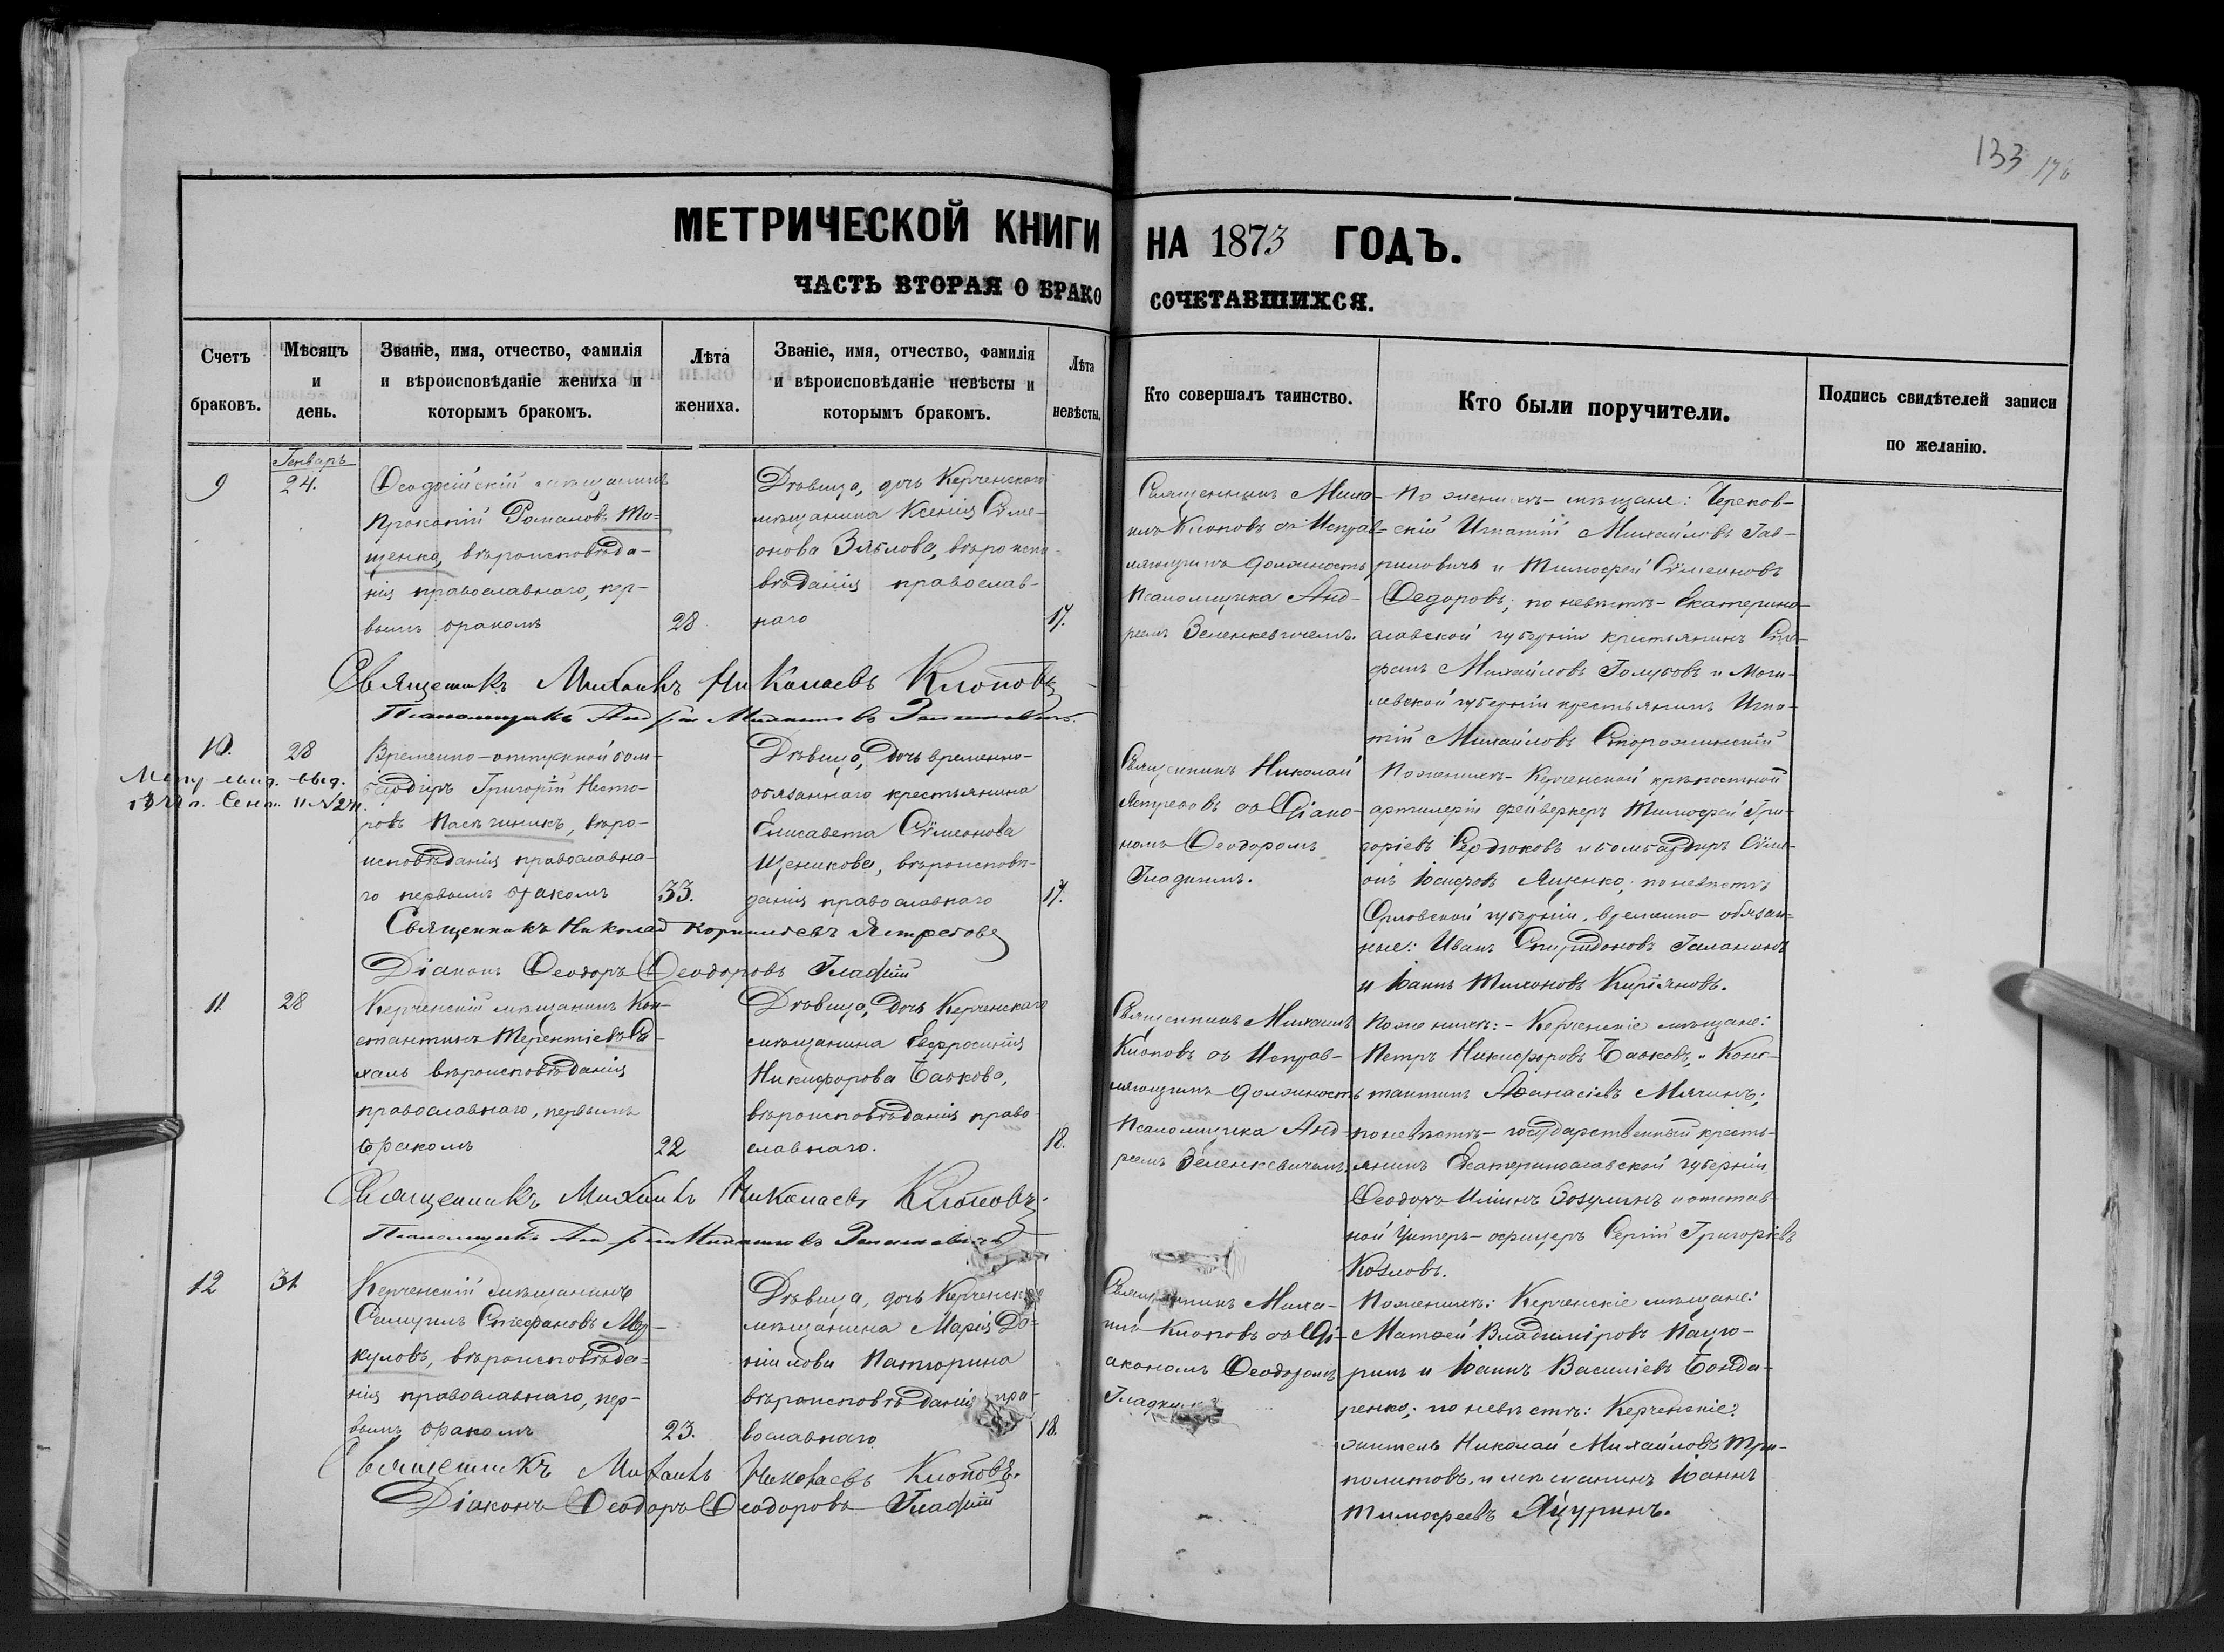 133
МЕТРИЧЕСКОЙ КНИГИ НА 1873 ГОДЪ.
ЧАСТЬ ВТОРАЯ О БРАКОСОЧЕТАВШИХСЯ.
Счетъ браковъ.
Мѣсяцъ и день.
Званіе, имя, отчество, фамилія и вѣроисповѣданіе жениха и которымъ бракомъ.
Лѣта жениха.
Званіе, имя, отчество, фамилія и вѣроисповѣданіе невѣсты и которымъ бракомъ.
Лѣта невѣсты.
Кто совершалъ таинство.
Кто были поручители.
Подпись свидѣтелей записи по желанію.
Генварь
9
24.
Ѳеодосійскій мѣщанинъ
Прокопій Романовъ То-
щенко, вѣроисповѣда-
нія православнаго, пер-
вымъ бракомъ
28
Дѣвица, дочь Керченскаго
мѣщанина Ксенія Сѵме-
онова Зяблова, вѣроиспо-
вѣданія православ-
наго
17.
Священникъ Миха-
илъ Клоповъ съ Исправ-
ляющимъ должность
Псаломщика Анд-
реемъ Зеленкевичемъ.
По женихѣ - мѣщане: Череков-
скій Игнатій Михайловъ Гав-
риловичъ и Тимоѳей Сѵмеоновъ
Ѳедоровъ; по невѣстѣ - Екатерино-
славской губерніи крестьянинъ Сте-
фанъ Михайловъ Голубовъ и Моги-
левской губерніи крестьянинъ Игна-
тій Михайловъ Сторожинскій
Священникъ Михаилъ Николаевъ Клоповъ
Псаломщикъ Андрей
10.
28
Временно-отпускной бом-
бардиръ Григорій Несто-
ровъ Пасѣчникъ, вѣро-
исповѣданія православна-
го первымъ бракомъ
33.
Дѣвица, дочь временно-
обязаннаго крестьянина
Елисавета Сѵмеонова
Щеникова, вѣроисповѣ-
данія православнаго
17.
Священникъ Николай
Ястребовъ съ Діако-
номъ Ѳеодоромъ
Гладкимъ.
По женихѣ - Керченской крѣпостной
артилеріи фейверкеръ Тимоѳей Гри-
горіевъ Сердюковъ и бомбардиръ Сѵме-
онъ Іосифовъ Яценко; по невѣстѣ
Орловской губерніи, временно-обязан-
ные: Иванъ Спиридоновъ Галанинъ
и Іоаннъ Тихоновъ Кирьяновъ.
Священникъ Николай Корниліевъ Ястребовъ
Діаконъ Ѳеодоръ Ѳеодоровъ Гладкій
11
28
Керченскій мѣщанинъ Кон-
стантинъ Терентіевъ
вѣроисповѣданія
православнаго, первымъ
бракомъ
22
Дѣвица, дочь Керченскаго
мѣщанина Евфросинія
Никифорова Бабкова,
вѣроисповѣданія право-
славнаго.
18.
Священникъ Михаилъ
Клоповъ съ Исправ-
ляющимъ должность
Псаломщика Анд-
реемъ Зеленкевичемъ.
По женихѣ: - Керченскіе мѣщане:
Петръ Никифоровъ Бабковъ, и Конс-
тантинъ Аѳанасіевъ Мячинъ;
по невѣстѣ - государственный кресть-
янинъ Екатеринославской губерніи,
Ѳеодоръ Ильинъ Зозулинъ и отстав-
ной Унтеръ-офицеръ Сергій Григоріевъ
Козловъ.
Священникъ Михаилъ Николаевъ Клоповъ.
Псаломщикъ Андрей
12
31
Керченскій мѣщанинъ
Самуилъ Стефановъ Му-
куловъ, вѣроисповѣда-
нія православнаго, пер-
вымъ бракомъ
23.
Дѣвица, дочь Керченскаго
мѣщанина Марія Да-
ніилова Паторина
вѣроисповѣданія пра-
вославнаго
18.
Священникъ Миха-
илъ Клоповъ съ Ді-
акономъ Ѳеодоромъ
Гладкимъ
По женихѣ: Керченскіе мѣщане:
Матѳей Владиміровъ Пацю-
ринъ и Іоаннъ Василіевъ Бонда-
ренко; по невѣстѣ: Керченскіе:
житель Николай Михайловъ Три-
политовъ, и мѣщанинъ Іоаннъ
Тимоѳеевъ Яцуринъ.
Священникъ Михаилъ Николаевъ Клоповъ.
Діаконъ Ѳеодоръ Ѳеодоровъ Гладкій